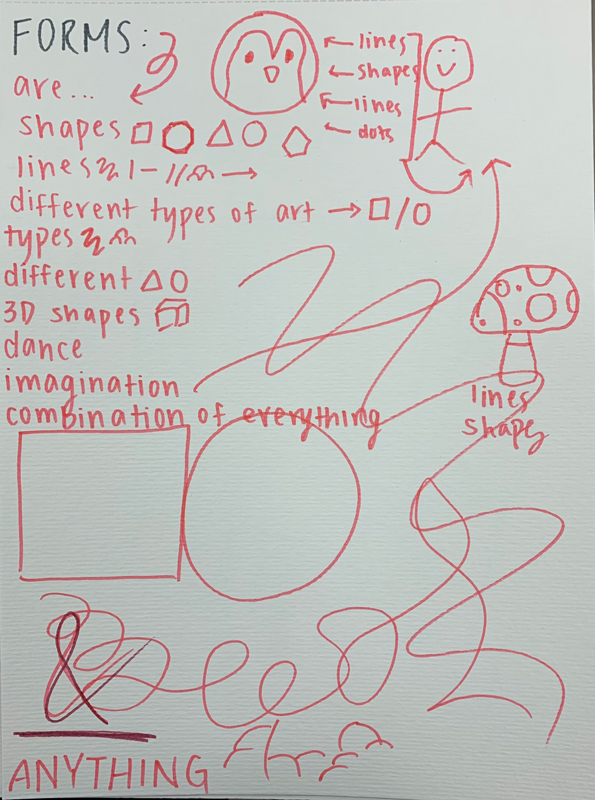 FORMS:
are...
shapes
lines
different types of art
types
different
3D shapes
dance
imagination
combination of everything
&
ANYTHING
lines
shapes
lines
dots
lines
shapes